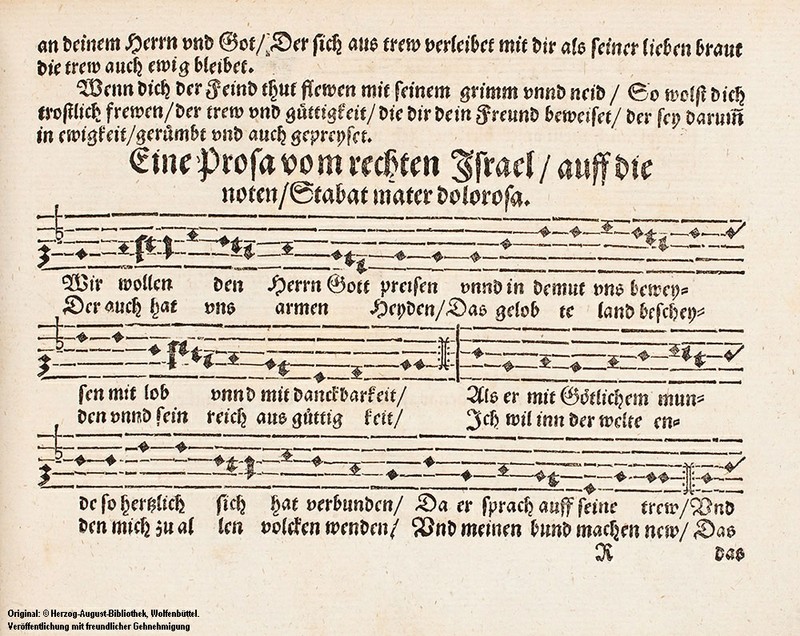 an deinem Herrn vnd Got/ Der sich aus trew verleibet mit dir als seiner lieben braut
die trew auch ewig bleibet.
Wenn dich der Feind thut flewen mit seinem grimm vnnd neid / So wolst dich
trostlich frewen/ der trew vnd güttigkeit/ die dir dein Freund beweiset/ der sey darum̄
in ewigkeit/ gerümbt vnd auch gepreyset.
Eine Prosa vom rechten Israel / auff die
noten/ Stabat mater dolorosa.
Wir wollen den Herrn Gott preisen vnnd in demut vns bewey=
Der auch hat vns armen Heyden/ Das gelob te land beschey=
sen mit lob vnnd mit danckbarkeit/ Als er mit Götlichem mun=
den vnnd sein reich aus güttig keit/ Ich wil inn der welte en=
de so hertzlich sich hat verbunden/ Da er sprach auff seine trew/ Vnd
den mich zu al len volcken wenden/ Vnd meinen bund machen new/ Das
R das
Original: © Herzog-August-Bibliothek, Wolfenbüttel.
Veröffentlichung mit freundlicher Gehnehmigung